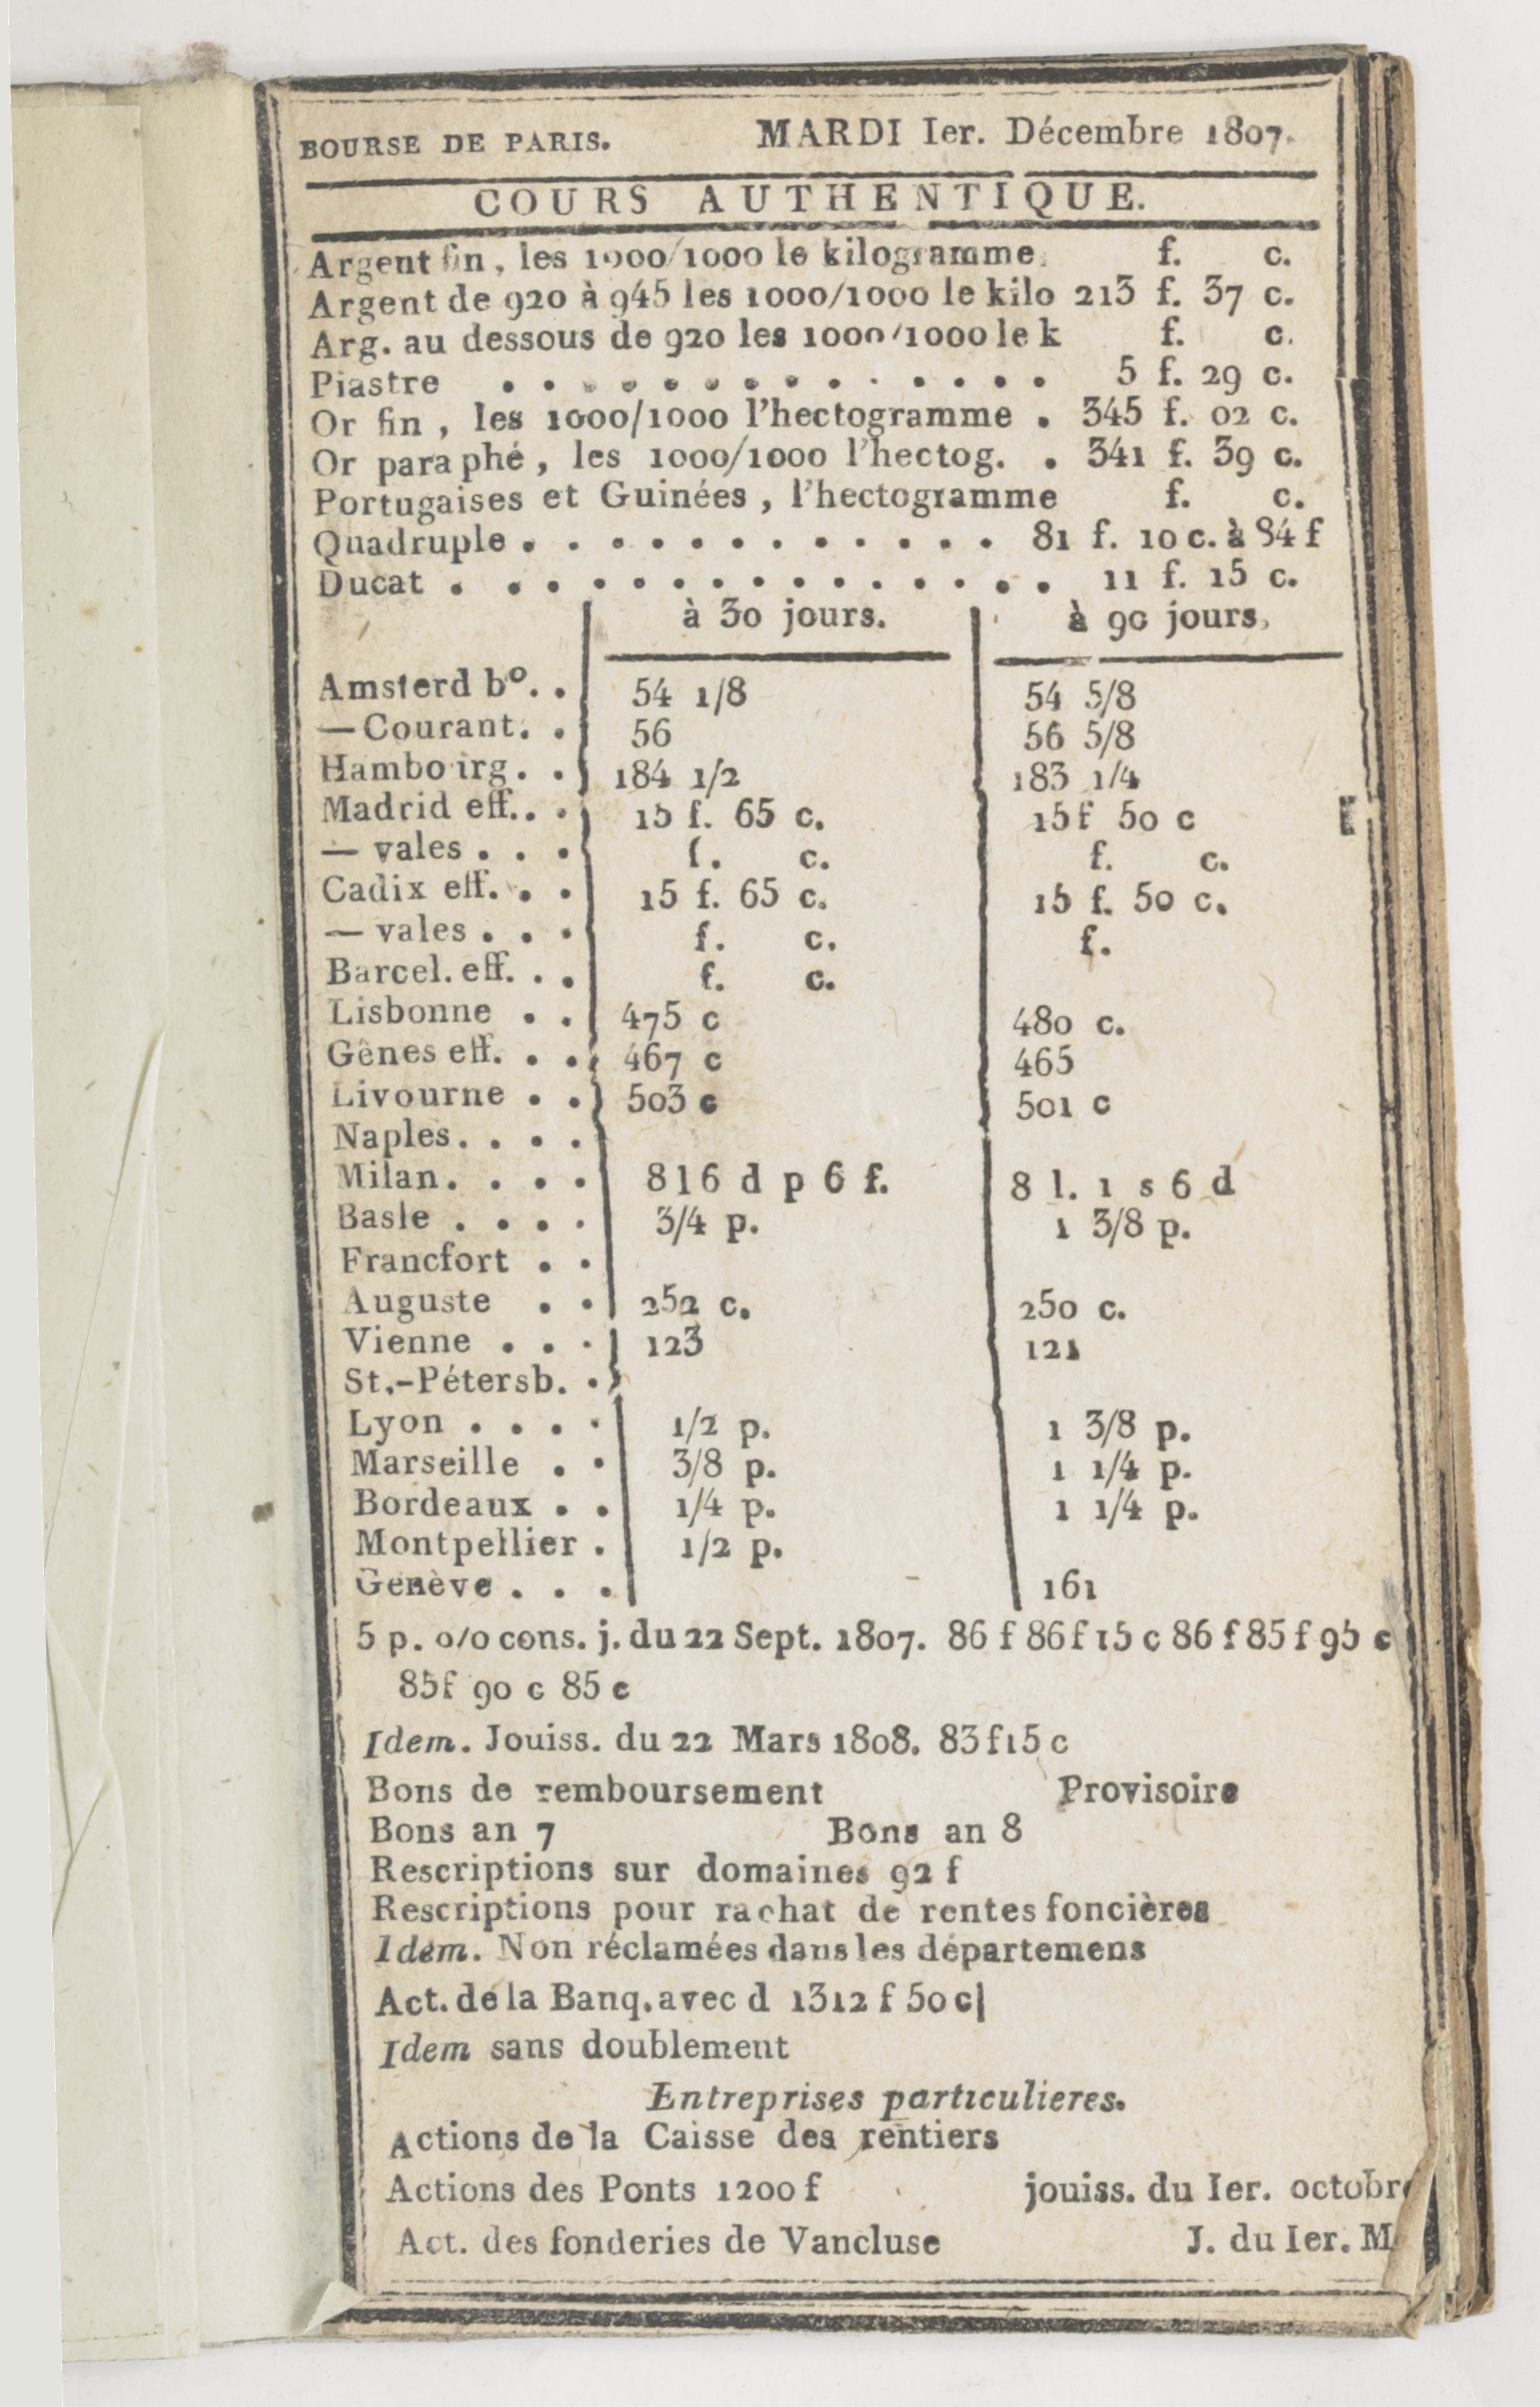 BOURSE DE PARIS. MARDI Ier. Décembre 1807.
COURS AUTHENTIQUE.
Argent fin, les 1000/1000 le kilogramme f. c.
Argent de 920 à 945 les 1000/1000 le kilo 213 f. 37 c.
Arg. au dessous de 920 les 1000/1000 le k f. c.
Piastre . . . . . . . . . . . . . . 5 f. 29 c.
Or fin, les 1000/1000 l'hectogramme . 345 f. 02 c.
Or paraphé, les 1000/1000 l'hectog. . 341 f. 39 c.
Portugaises et Guinées, l'hectogramme f. c.
Quadruple . . . . . . . . . . . . 81 f. 10 c. à 84 f
Ducat . . . . . . . . . . . . . . . 11 f. 15 c.
à 30 jours. à 90 jours,
Amsterd b°. . 54 1/8 54 5/8
—Courant. . 56 56 5/8
Hambourg. . 184 1/2 183 1/4
Madrid eff.. . 15 f. 65 c. 15 f 50 c
— vales . . . f. c. f. c.
Cadix eff. . . 15 f. 65 c. 15 f. 50 c.
— vales . . . f. c. f.
Barcel. eff. . . f. c.
Lisbonne . . 475 c 480 c.
Gênes eff. . . 467 c 465
Livourne . . 503 c 501 c
Naples. . . .
Milan. . . . 816 d p 6 f. 8 l. 1 s 6 d
Basle . . . . 3/4 p. 1 3/8 p.
Francfort . .
Auguste . . 252 c. 250 c.
Vienne . . . 123 121
St.-Pétersb. .
Lyon . . . . 1/2 p. 1 3/8 p.
Marseille . . 3/8 p. 1 1/4 p.
Bordeaux . . 1/4 p. 1 1/4 p.
Montpellier . 1/2 p.
Genève . . . 161
5 p. 0/0 cons. j. du 22 Sept. 1807. 86 f 86 f 15 c 86 f 85 f 95 c
85f 90 c 85 c
Idem. Jouiss. du 22 Mars 1808. 83 f 15 c
Bons de remboursement Provisoire
Bons an 7 Bons an 8
Rescriptions sur domaines 92 f
Rescriptions pour rachat de rentes foncières
Idem. Non réclamées dans les départemens
Act. de la Banq. avec d 1312 f 50 c|
Idem sans doublement
Entreprises particulieres.
Actions de la Caisse des rentiers
Actions des Ponts 1200 f jouiss. du Ier. octobre
Act. des fonderies de Vancluse J. du Ier. M